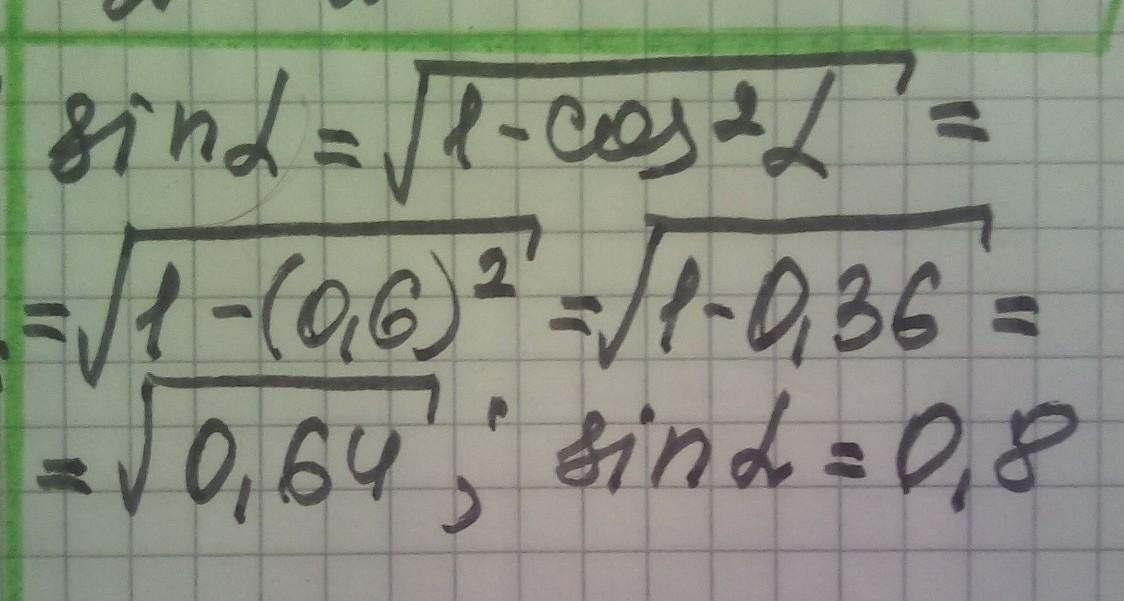 sinα = √(1 - cos²α) =
= √(1 - (0,6)²) = √(1 - 0,36) =
= √0,64 ; sinα = 0,8